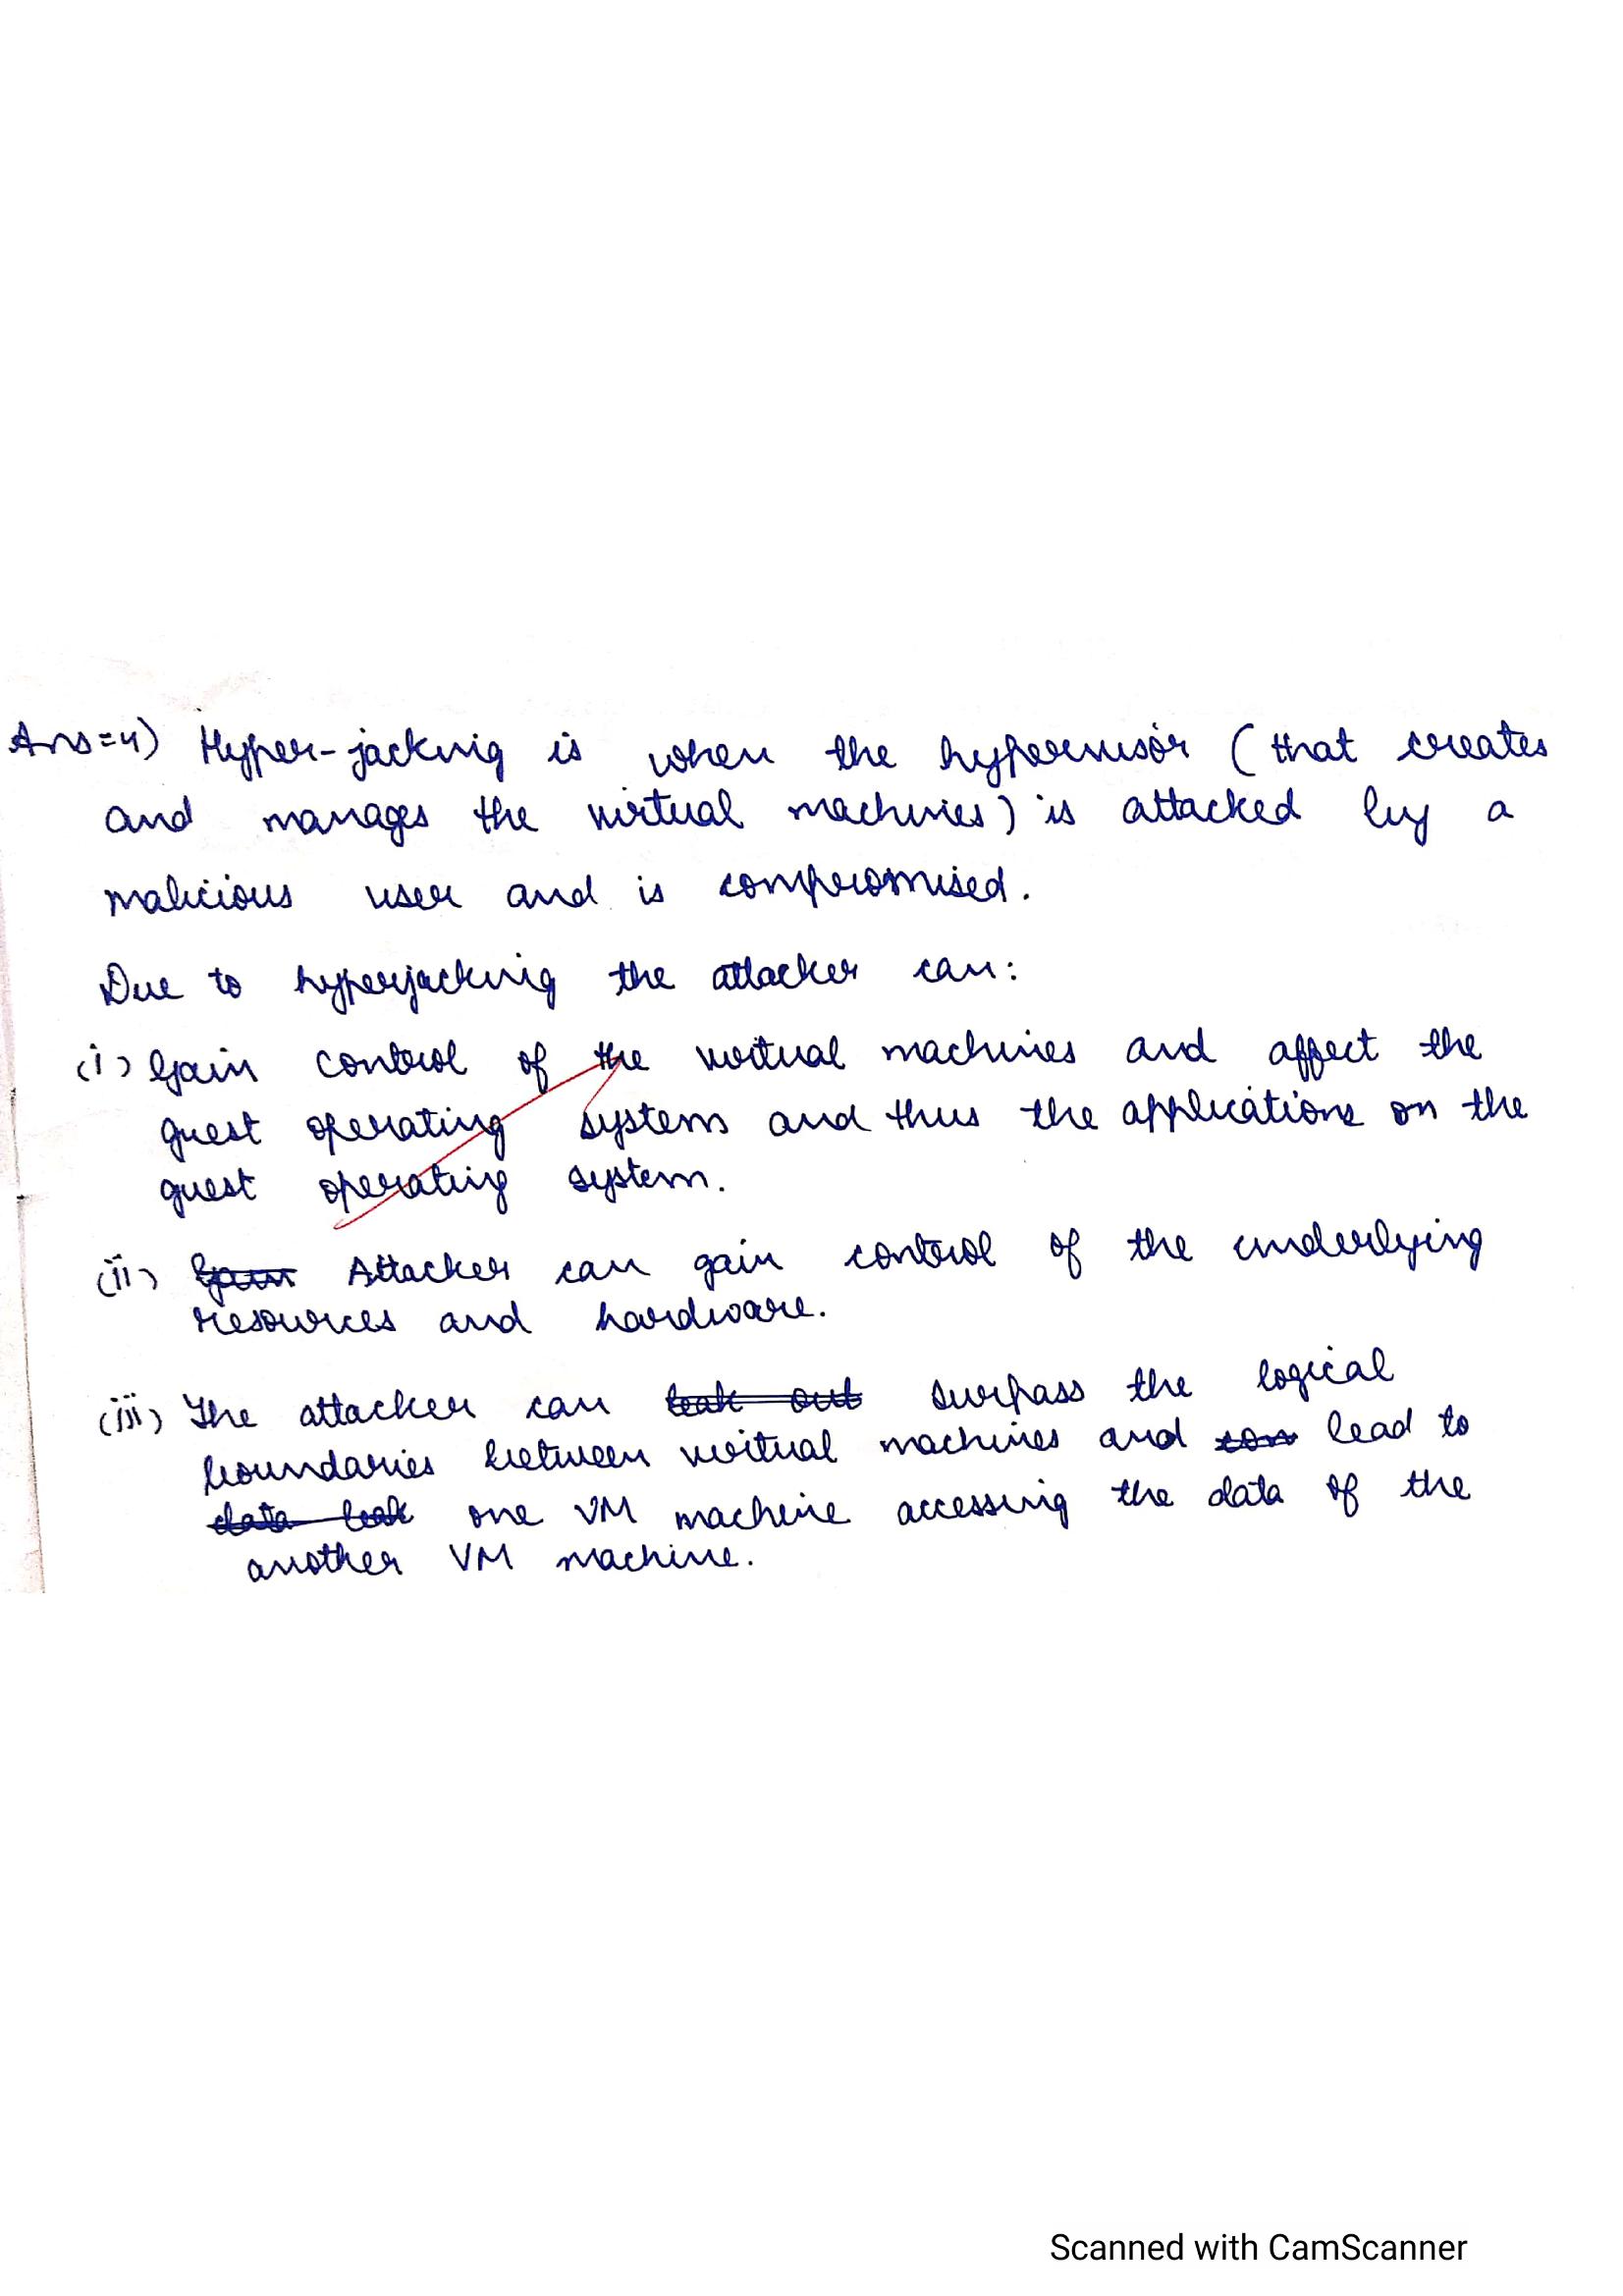 Ans=4) Hyper-jacking is when the hypervisor (that creates
and manages the virtual machines) is attacked by a
malicious user and is compromised.
Due to hyperjacking the attacker can:
(i) Gain control of the virtual machines and affect the
guest operating system and thus the applications on the
guest operating system.
(ii) Gain Attacker can gain control of the underlying
resources and hardware.
(iii) The attacker can leak out surpass the logical
boundaries between virtual machines and lead to
data leak one VM machine accessing the data of the
another VM machine.
Scanned with CamScanner